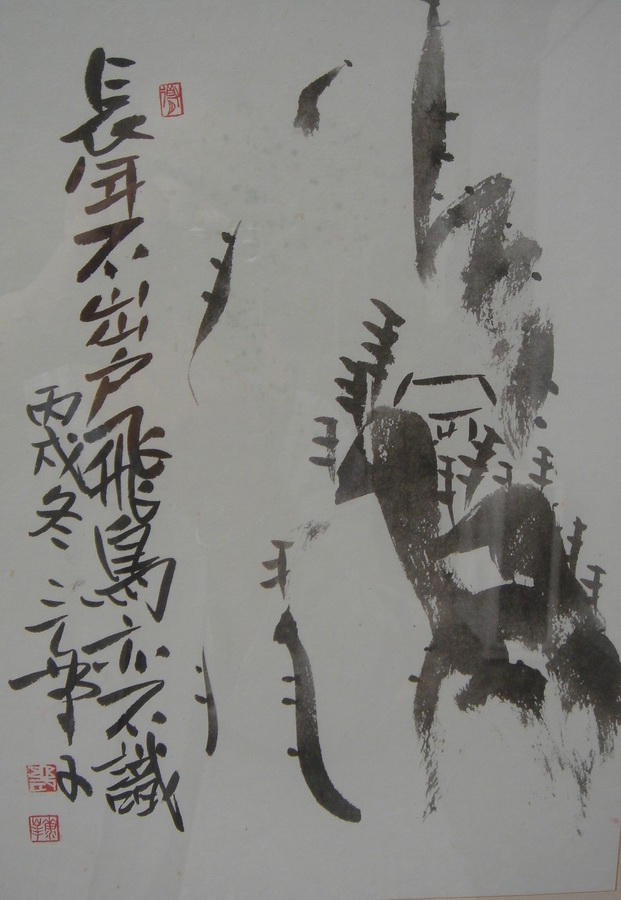 長年不出户飛鳥亦不識
丙戌冬